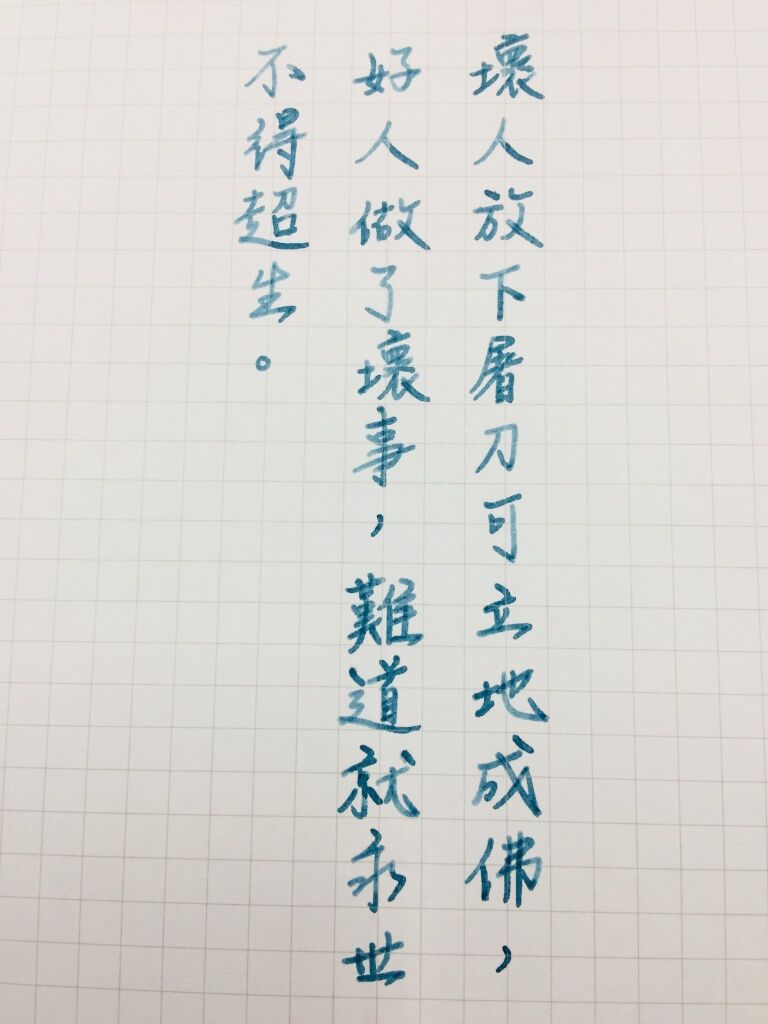 壞人放下屠刀可立地成佛，
好人做了壞事，難道就永世
不得超生。